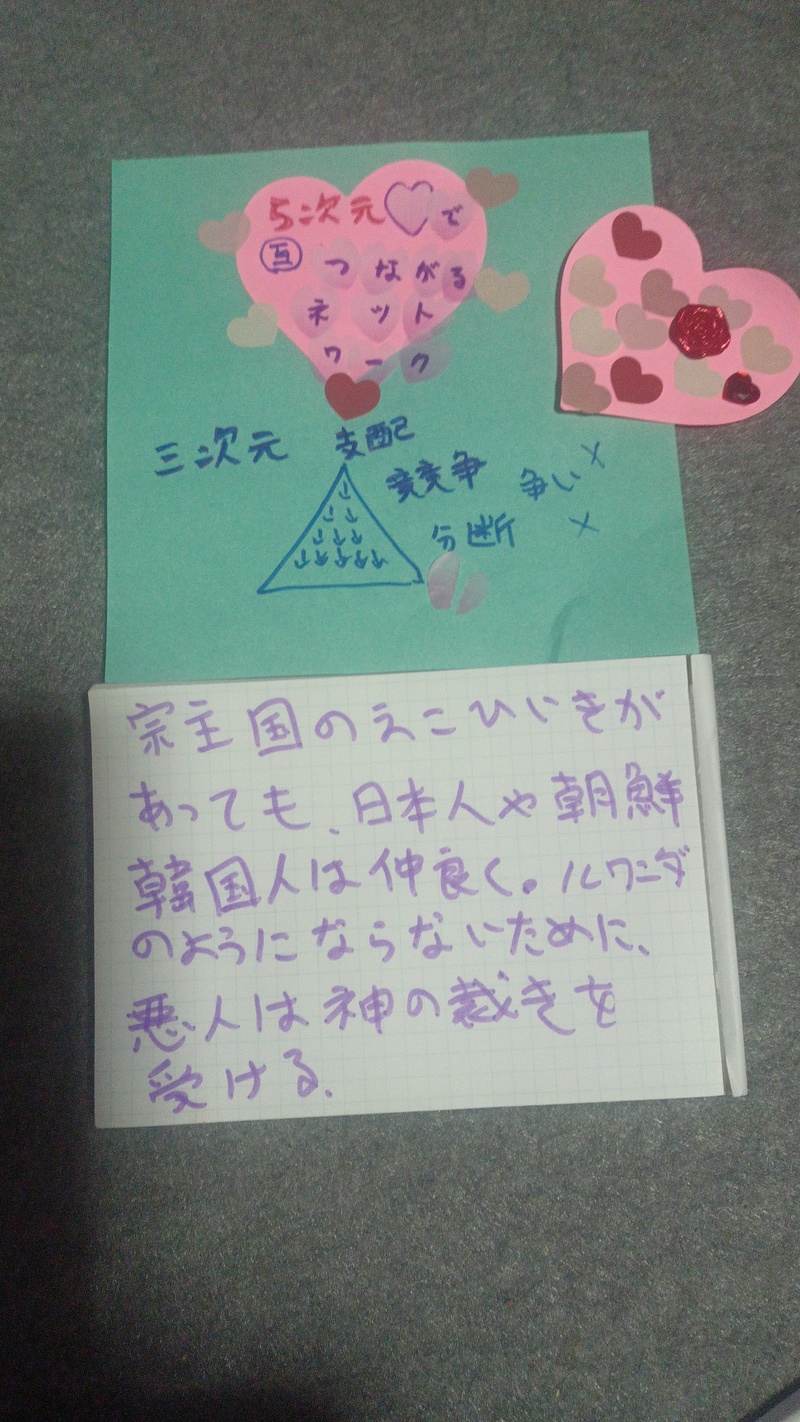 5次元♡で
互 つながる
ネット
ワーク
三次元 支配
競争 争い×
分断 ×
↓
↓↓
↓↓↓
↓↓↓↓↓
宗主国のえこひいきが
あっても、日本人や朝鮮
韓国人は仲良く。ルワンダ
のようにならないために、
悪人は神の裁きを
受ける.